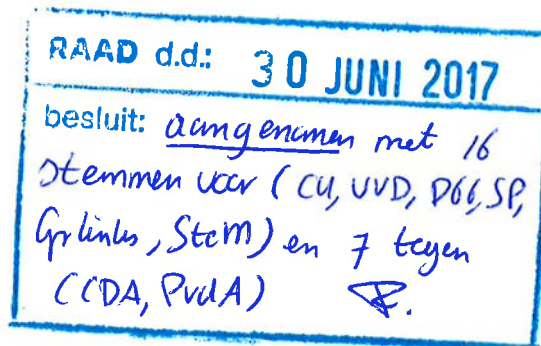 RAAD d.d.: 30 JUNI 2017
besluit: aangenomen met 16
stemmen voor (CU, VVD, D66, SP,
Grlinks, StcM) en 7 tegen
(CDA, PvdA)